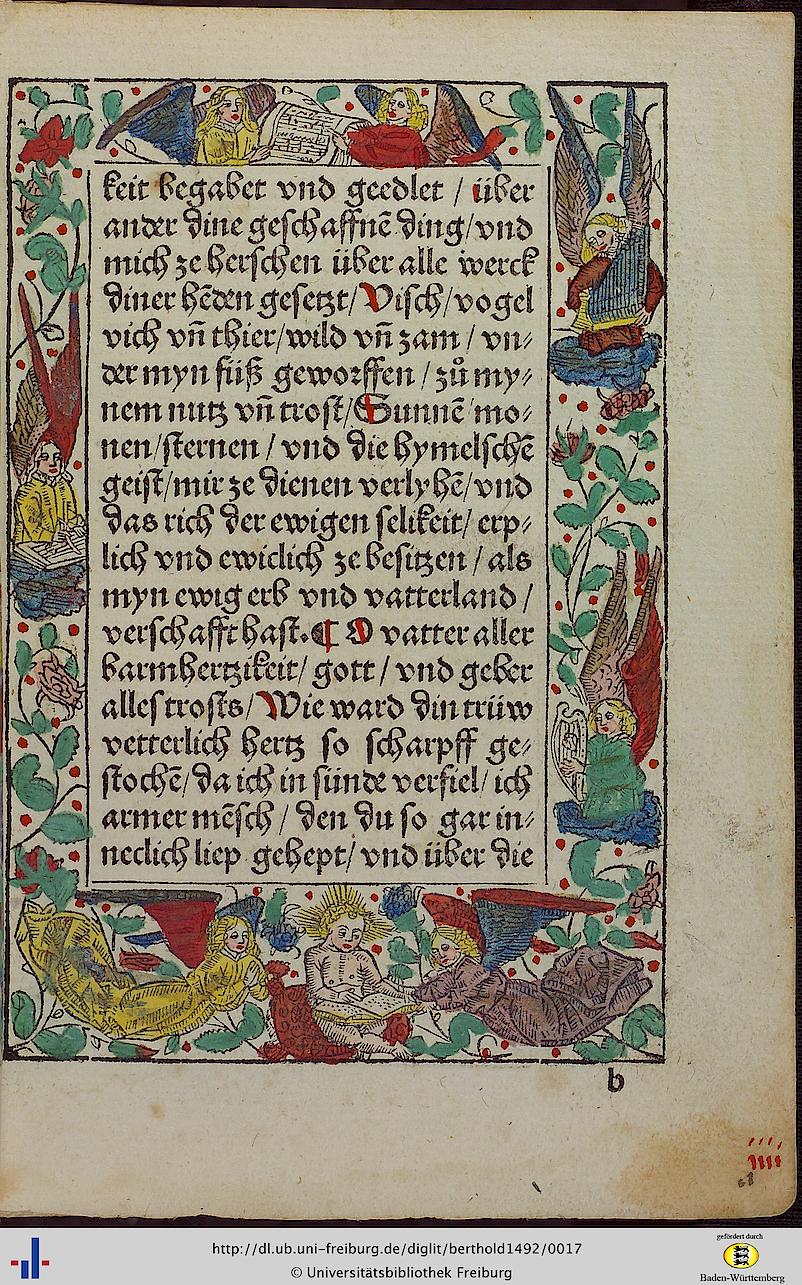 keit begabet vnd geedlet / über
ander dine geschaffnē ding/vnd
mich ze herschen über alle werck
diner hēden gesetzt/Visch/vogel
vich vn̄ thier/wild vn̄ zam / vn⸗
der myn füß geworffen / zů my⸗
nem nutz vn̄ trost/Sunnē mo⸗
nen/sternen / vnd die hymelschē
geist/mir ze dienen verlyhē/vnd
das rich der ewigen selikeit/ erp⸗
lich vnd ewiclich ze besitzen / als
myn ewig erb vnd vatterland /
verschafft hast. ¶ O vatter aller
barmhertzikeit/ gott / vnd geber
alles trosts/Wie ward din trüw
vetterlich hertz so scharpff ge⸗
stochē/da ich in sünde verfiel/ ich
armer mēsch / den du so gar in⸗
neclich liep gehept/ vnd über die
b
iiii
http://dl.ub.uni-freiburg.de/diglit/berthold1492/0017
© Universitätsbibliothek Freiburg
gefördert durch
Baden-Württemberg